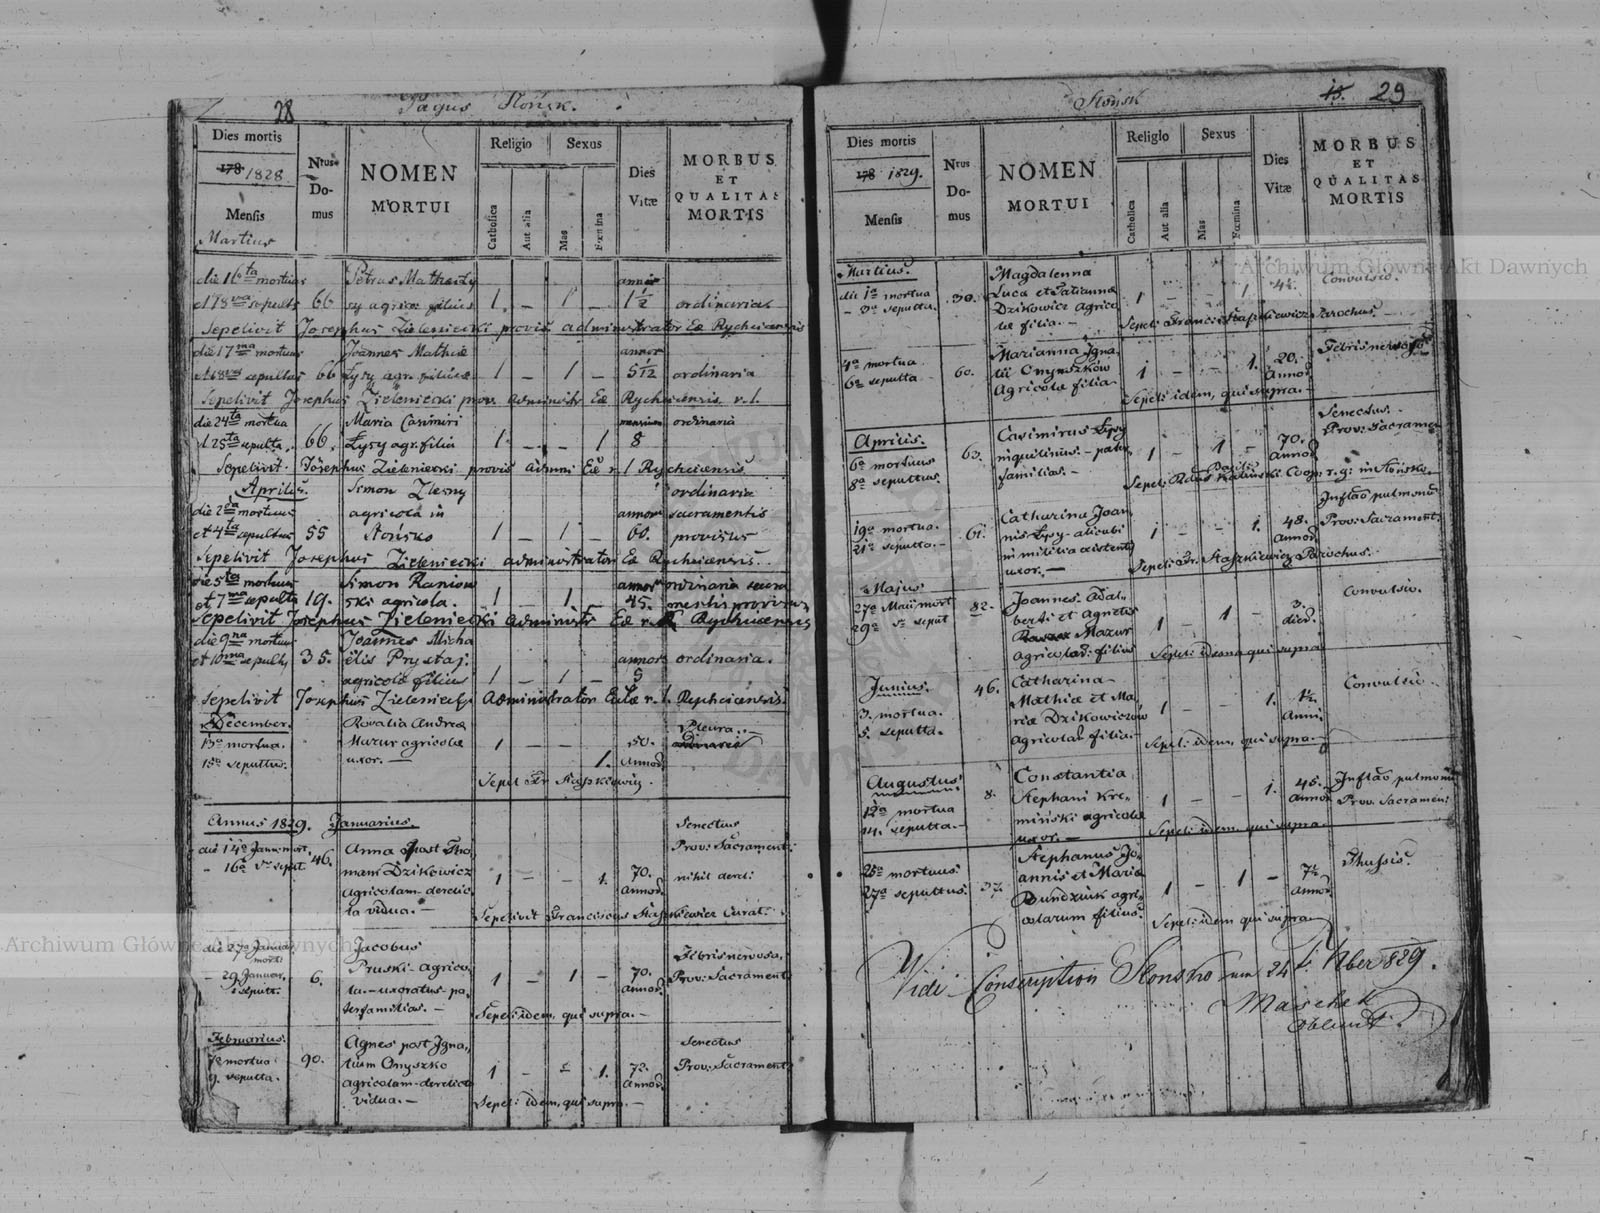 28
Pagus Stońsk.
Dies mortis
178 1828
Mensis
Martius
Ntus
Do-
mus
NOMEN
MORTUI
Religio
Catholica
Aut alia
Sexus
Mas
Fœmina
Dies
Vitæ
MORBUS
ET
QUALITAS
MORTIS
die 16ta mortuus
et 18va sepults 66
Petrus Mathei Ły
sy agric filius
1 - 1 -
annor
1 1/2
ordinaria
Sepelivit Josephus Zieleniecki provis administrator Eæ Rychciensis
die 17ma mortuus
et 18va sepultus 66
Joannes Mathiæ
Łysy agr. filius
1 - 1 -
annor
5 1/2
ordinaria
Sepelivit Josephus Zieleniecki prov. administr Eæ Rychciensis r. l.
die 24ta mortua
et 25ta sepulta. 66.
Maria Casimiri
Łysy agr. filia
1 - - 1
mensium
8
ordinaria
Sepelivit Josephus Zieleniecki provis Admni Eæ r. l Rychciensis
Aprilis.
die 2da mortuus
et 4ta sepultus 55
Simon Zlesny
agricola in
Stońsko
1 - 1 -
annor
60.
ordinaria
sacramentis
provisus
Sepelivit Josephus Zieleniecki administrator Eæ Rychciensis.
die 5ta mortuus
et 7ma sepults 19.
Simon Raniow
ski agricola.
1 - 1 -
annor
45.
ordinaria sacra
mentis provisus
Sepelivit Josephus Zieleniecki Administr Eæ r. l. Rychciensis
die 9na mortuus
et 10ma sepults 35.
Joannes Micha
ëlis Prystaj.
agricolæ filius
1 - 1 -
annor
5
ordinaria.
Sepelivit Josephus Zieleniecki Administrator Eclæ r. l. Rychciensis.
December.
13a mortua.
15a sepultus.
Rosalia Andreæ
Mazur agricolæ
uxor.
1 - - 1.
50.
Annor.
Pleura.
ordinaria
Sepel Fr Staszkiewicz.
Annus 1829. Januarius.
die 14a Janu mort.
- 16a S- sepult 46.
Anna post Tho-
mam Dzikowicz
agricolam derelic-
ta vidua.-
1 - - 1.
70.
Annor.
Senectus
Prov: Sacrament:
nihil dereli:
Sepelivit Franciscus Staszkiewicz Curat:
die 27a Januar.
mort:
- 29 Januar.
sepult: 6.
Jacobus
Pruski - agrico-
la.- uxoratus - pa-
terfamilias. -
1 - 1 -
70.
Annor.
Febris nervosa,
Prov: Sacrament:
Sepel: idem, qui supra. -
Februarius.
7a mortua:
9. sepulta. 90.
Agnes post Igna-
tium Onyszko
agricolam - derelicta
vidua. -
1 - - 1.
72.
Annor.
Senectus
Prov: Sacrament:
Sepel: idem, qui supra. -
15. 29
Stońsk
Dies mortis
178 1829.
Mensis
Ntus
Do-
mus
NOMEN
MORTUI
Religio
Catholica
Aut alia
Sexus
Mas
Fœmina
Dies
Vitæ
MORBUS
ET
QUALITAS
MORTIS
Martius.
die 1a mortua
- 3a sepulta. 30.
Magdalenna
Lucæ et Tatiannæ
Dzikowicz agrico-
læ filia. -
1 - - 1.
Convulsio.
Sepel: Franc: Staszkiewicz Parochus. -
4a mortua
6a sepulta - 60.
Marianna Igna-
tii Onyszków
Agricolæ filia -
1 - - 1.
20.
Annor
Febris nervosa
Sepel: idem, qui supra.
Aprilis.
6a mortuus
8a sepultus. 63.
Casimirus Łysy
inquilinus. - pater
familias. -
1 - 1 -
70.
Annor
Senectus.
Prov: Sacramen
Sepel: Kaliński Coop: r. g: in Stońsko.
19a mortua.
21a sepulta. - 61.
Catharina Joan-
nis Łysy - alicubi
in militia existentis
uxor. -
1 - - 1.
48.
Annor
Inflão pulmonũ
Prov: Sacrament:
Sepel: Fr. Staszkiewicz Parochus.
Majus.
27a Maii mort
29a S- sepult 82.
Joannes. Adal-
berti et Agnetis
Mazur
agricolar: filius
1 - 1 -
3.
dier.
Convulsio.
Sepel: idem qui supra
Junius.
3. mortua.
5. sepulta. 46.
Catharina
Mathiæ et Ma-
riæ Dzikowiczów
agricolar filia. -
1 - - 1.
1 1/2
Anni.
Convulsio.
Sepel: idem, qui supra. -
Augustus.
12a mortua
14. sepulta. - 8.
Constantia
Stephani Kre-
miński agricolæ
uxor. -
1 - - 1.
45.
Annor
Inflão pulmonũ
Prov. Sacramen:
Sepel: idem, qui supra
25a mortuus
27a sepultus. 37.
Stephanus Jo-
annis et Mariæ
Dundziuk agri-
colarum filius.
1 - 1 -
7 1/2
Annor.
Thussis.
Sepel: idem qui supra
Vidi Conscription Stonsko am 24 t. 8ber 829.
Maschek
Archiwum Główne Akt Dawnych
Archiwum Główne Akt Dawnych